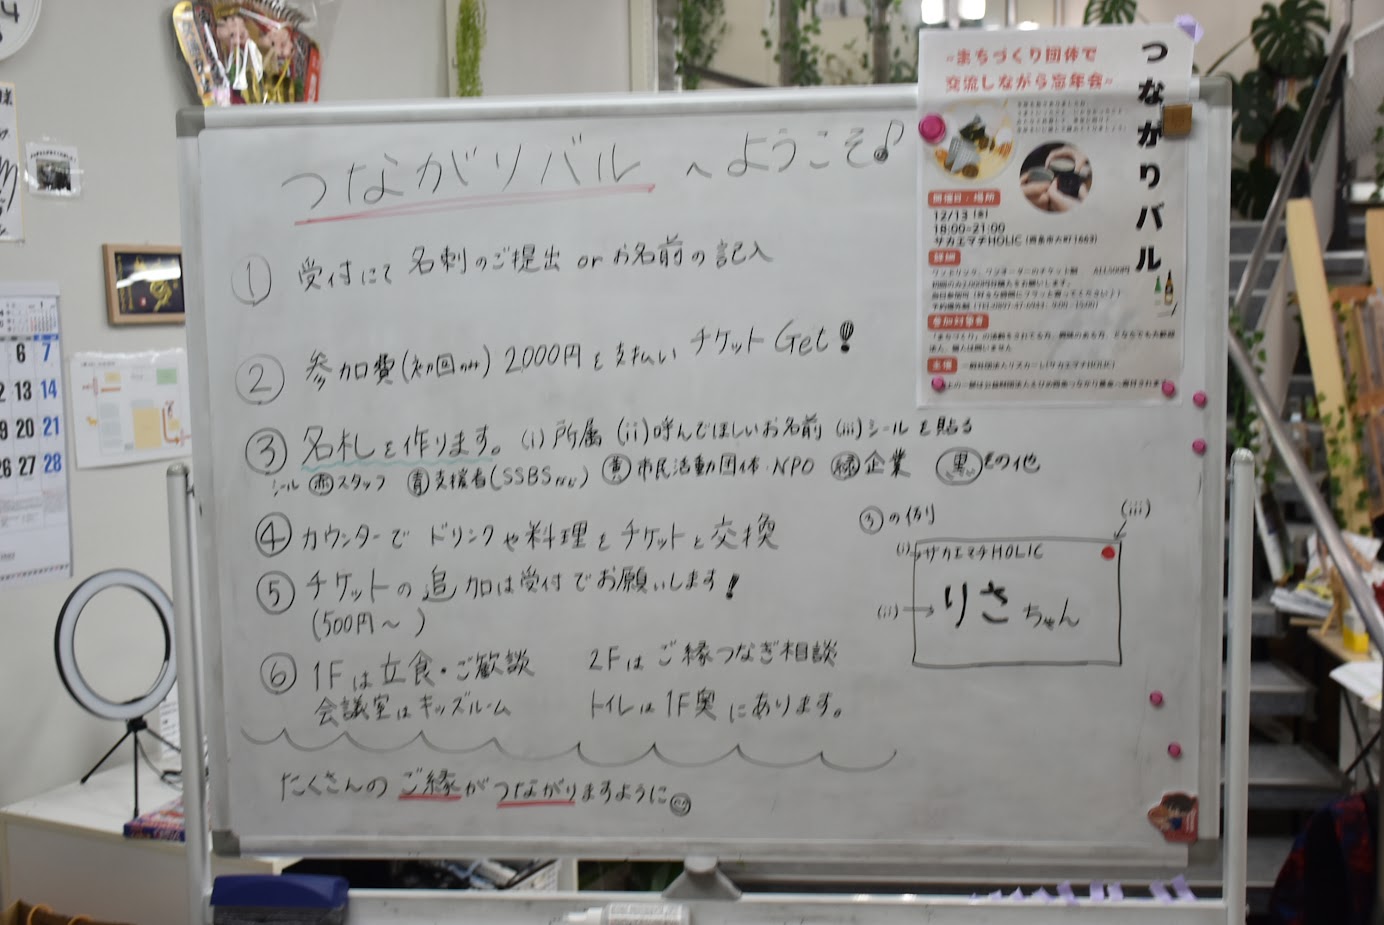 つながりバルへようこそ♪
① 受付にて 名刺のご提出 or お名前の記入
② 参加費(初回のみ) 2000円を支払い チケットGet!
③ 名札を作ります。 (i)所属 (ii)呼んでほしいお名前 (iii)シールを貼る
シール 赤スタッフ 青支援者(SSBSなど) 黄市民活動団体・NPO 緑企業 黒その他
④ カウンターで ドリンクや料理をチケットと交換
⑤ チケットの追加は受付でお願いします!
(500円〜 )
⑥ 1Fは立食・ご歓談 2Fはご縁つなぎ相談
会議室はキッズルーム トイレは1F奥にあります。
たくさんのご縁がつながりますように
③の例
(iii)
(i)→サカエマチHOLIC
(ii)→りさちゃん
-まちづくり団体で
交流しながら忘年会-
つながりバル
開催日・場所
12/13
18:00-21:00
サカエマチHOLIC
詳細
参加対象者
主催
6 7
12 13 14
19 20 21
26 27 28